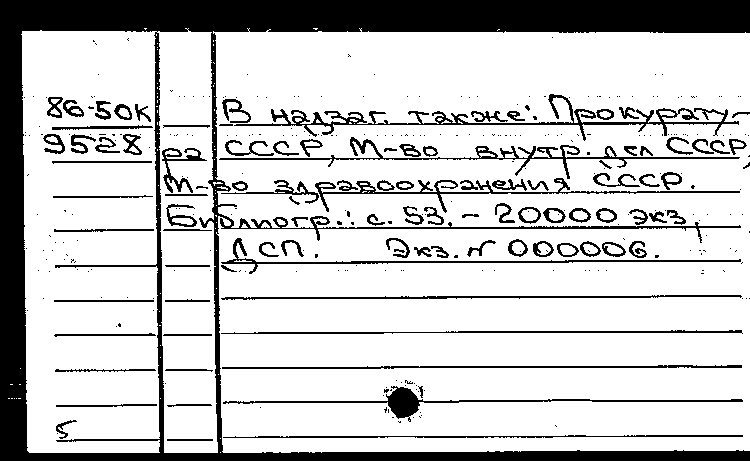 86-50к В надзаг. также: Прокурату-
9528 ра СССР, М-во внутр. дел СССР,
М-во здравоохранения СССР.
Библиогр.: с. 53. - 20000 экз.
ДСП. Экз. № 000006.
5